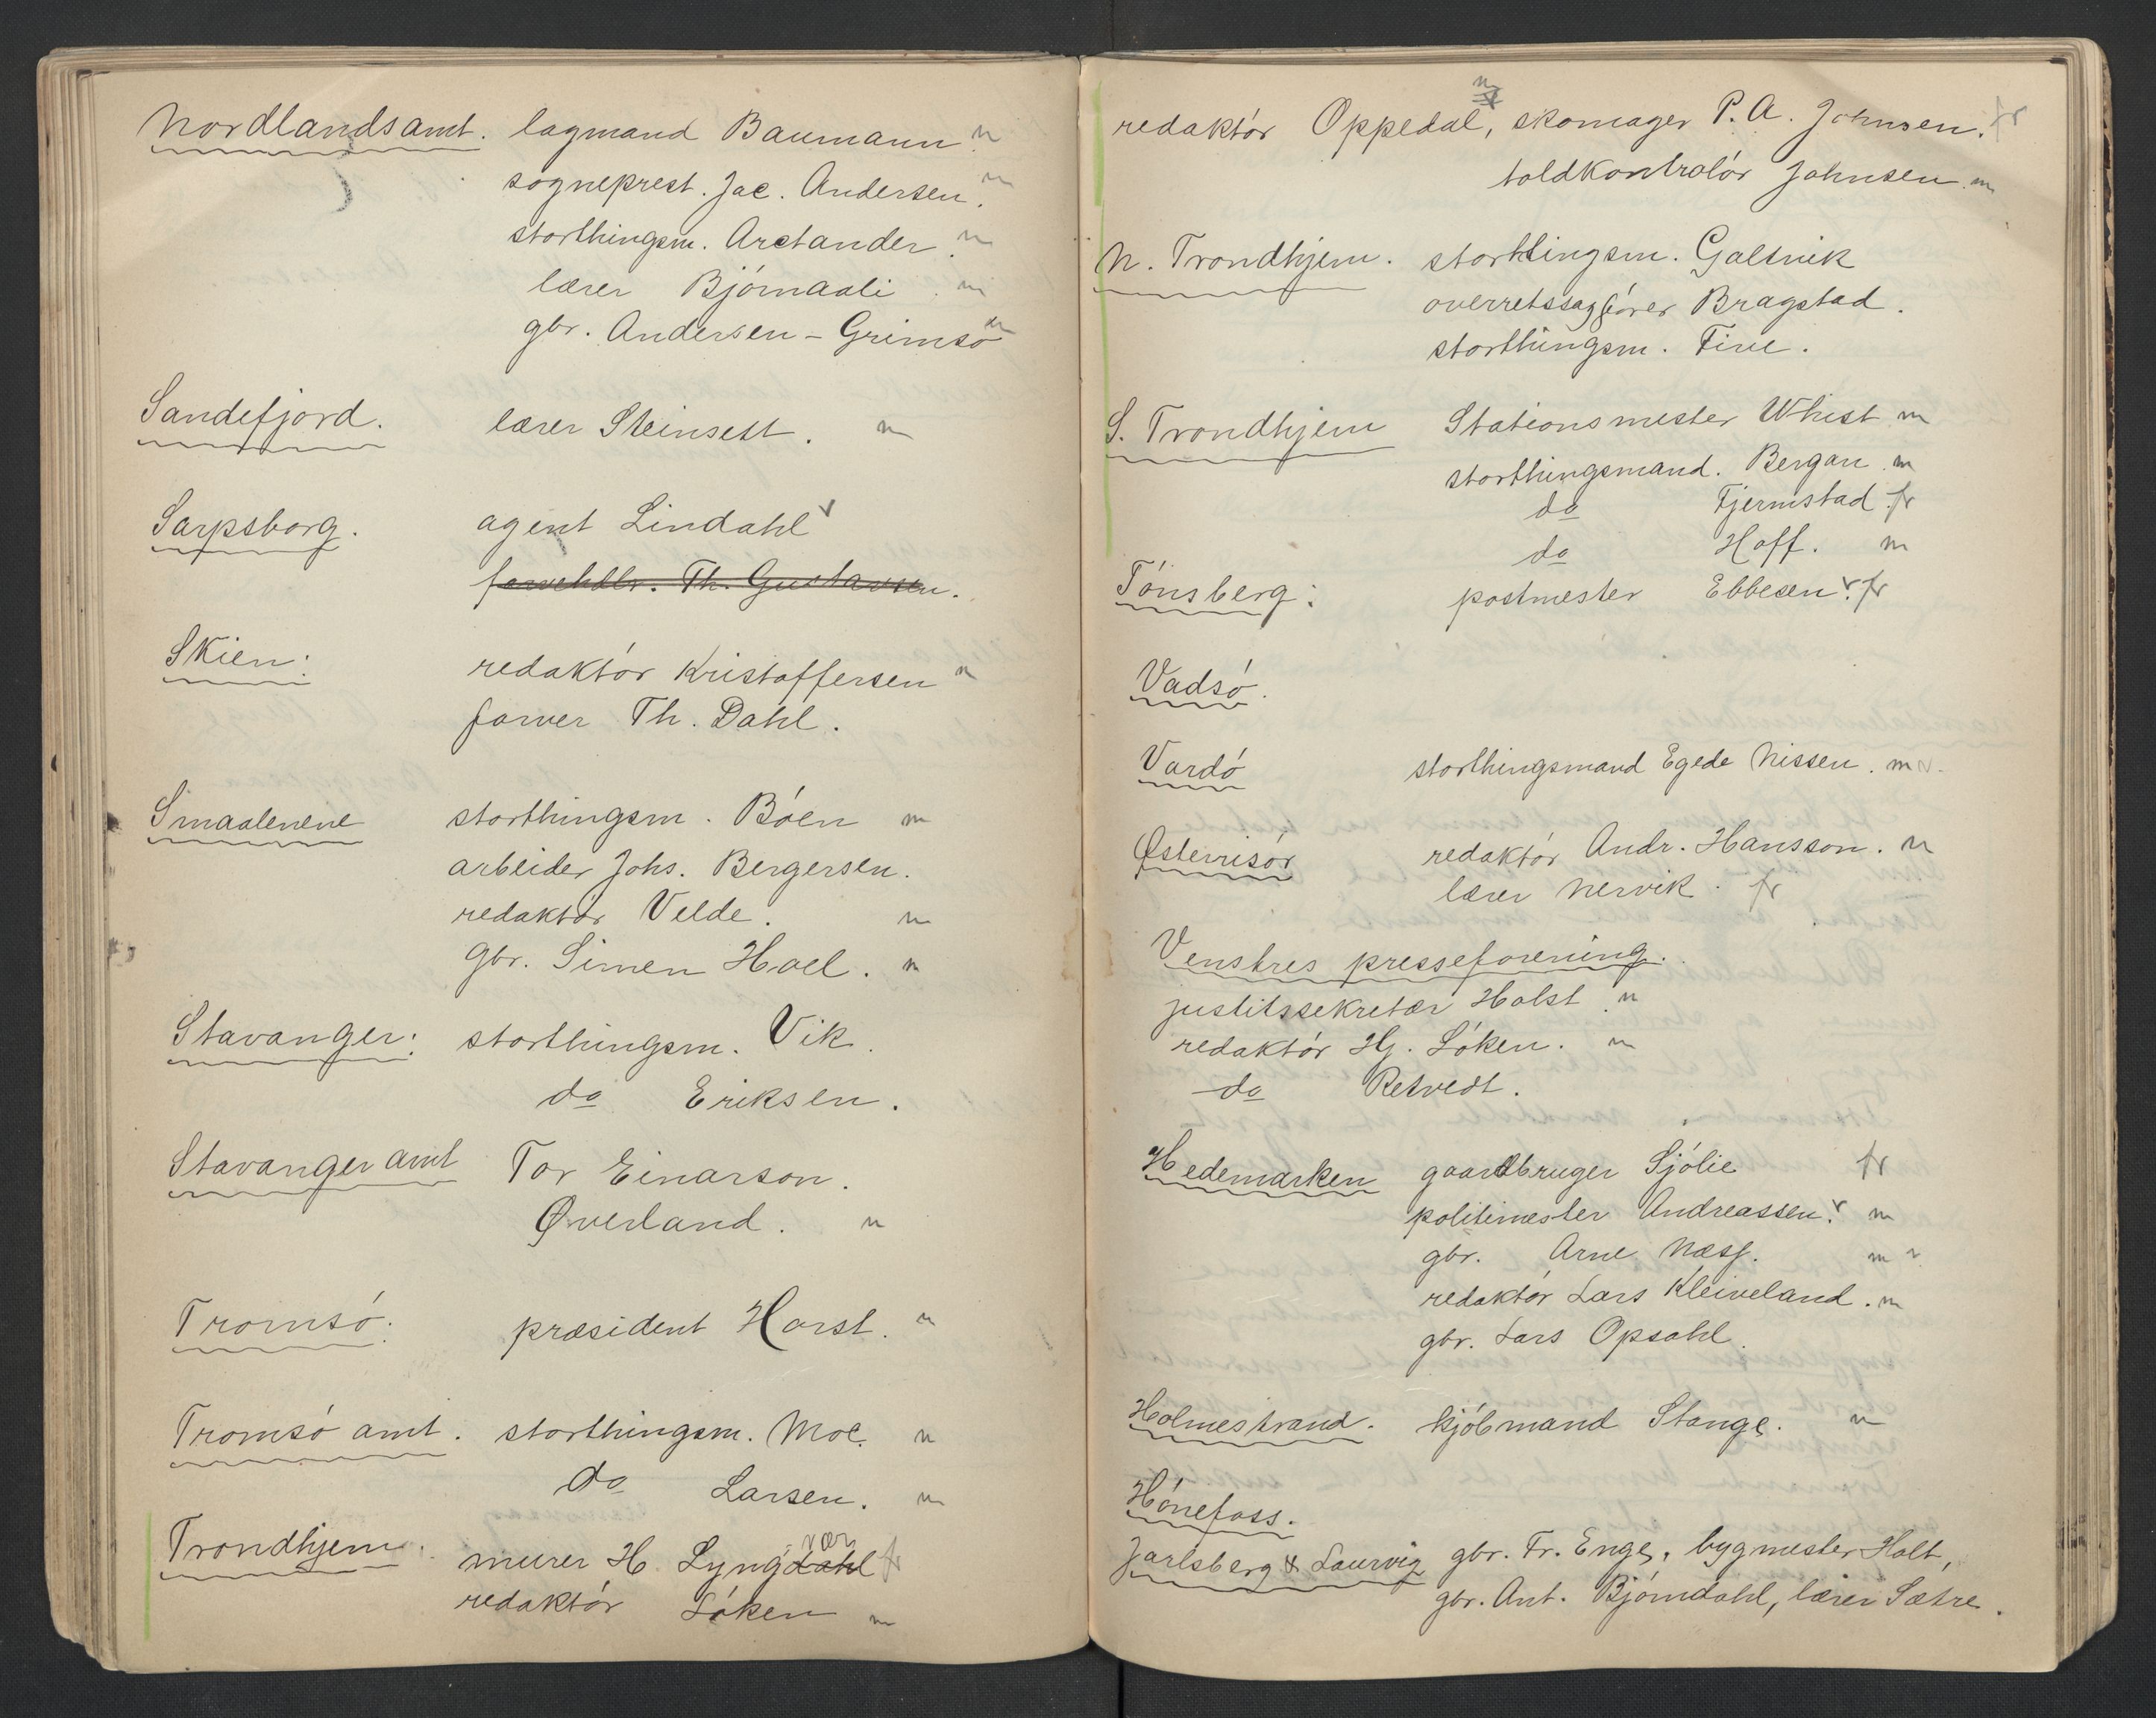 Nordlandsamt. lagmand Baumann. n
sogneprest. Jac. Andersen. m
storthingsm. Arctander. m
lærer Bjórnaali. m
gbr. Andersen-Grimsó m
Sandefjord. lærer Steinsett. m
Sarpsborg. agent Lindahl v
farvehdlr. Th. Gustavsen.
Skien: redaktór Kristoffersen n
farver Th. Dahl.
Smaalenene storthingsm. Bóen m
arbeider Johs. Bergersen.
redaktór Velde. m
Gbr. Simen Hoel. m
Stavanger: storthingsm. Vik.
do Eriksen.
Stavanger amt Tor Einarson.
Øverland. n
Tromsó. præsident Horst. n
Tromsó amt. storthingsm. Moe. n
do Larsen. m
Trondhjem. murer H. Lyngdahl vær fr
redaktór Lóken m
redaktór Oppedal, m skomager P. A. Johnsen. fr
toldkontrolór Johnsen. m
N. Trondhjem. storthingsm. Galtvik
overretssagfórer Bragstad.
storthingsm. Five.
S. Trondhjem Stationsmester Whist m
storthingsmand. Bergan m
do Fjermstad fr
do Hoff. m
Tónsberg: postmester Ebbesen. v fr
Vadsó.
Vardó storthingsmand Egede Nissen. m v.
Østerrisór redaktór Andr. Hansson. n
lærer Nervik. fr
Venstres presseforening.
justitssekretær Holst. n
redaktór Hj. Lóken. m
do Retvedt.
Hedemarken gaardbruger Sjólie fr
politimester Andreassen. v m
gbr. Arne Næss. m v
redaktór Lars Kleiveland. m
gbr. Lars Opsahl.
Holmestrand. kjóbmand Stange. n
Hónefoss.
Jarlsberg & Laurvig gbr. Fr. Enge, bygmester Holt,
gbr. Ant. Bjórndahl, lærer Sætre.